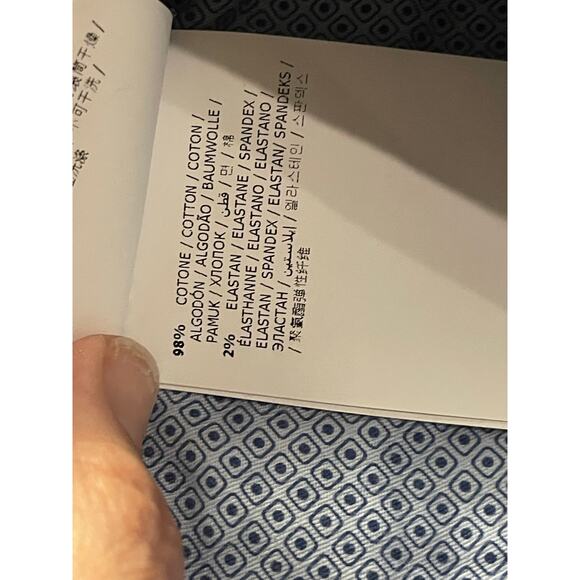 98% COTONE / COTTON / COTON /
ALGODÓN / ALGODÃO / BAUMWOLLE /
PAMUK / ХЛОПОК / قطن / 면 / 棉
2% ELASTAN / ELASTANE / SPANDEX /
ÉLASTHANNE / ELASTANO / ELASTANO /
ELASTAN / SPANDEX / ELASTAN/ SPANDEKS /
ЭЛАСТАН / ايلاستين / 엘라스테인 / 스판덱스
/ 聚氨酯弹性纤维
不可干洗 /